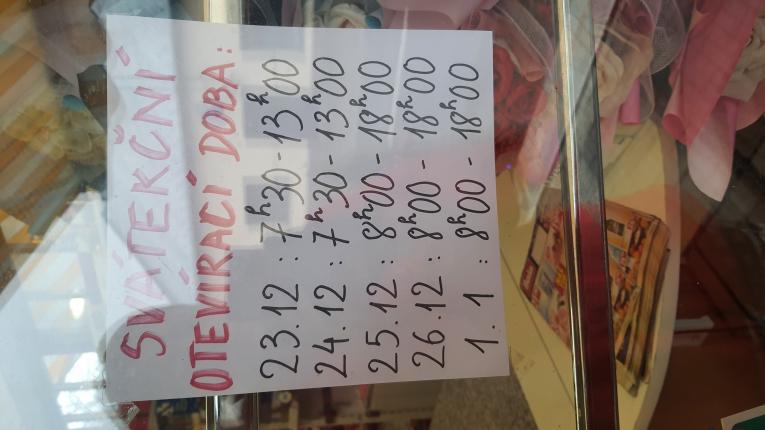 SVÁTEKČNÍ
OTEVÍRACÍ DOBA:
23.12 : 7h30 - 13h00
24.12 : 7h30 - 13h00
25.12 : 8h00 - 18h00
26.12 : 8h00 - 18h00
1. 1 : 8h00 - 18h00